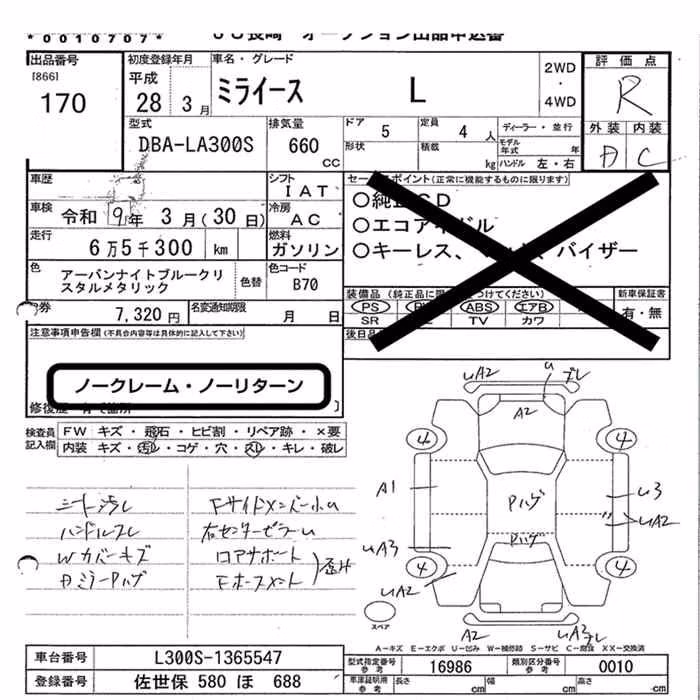 *0010707*
JU長崎 オークション出品申込番
出品番号
[866]
170
初度登録年月
平成
28 3月
車名・グレード
ミライース L
2WD
・
4WD
評価点
R
外装 内装
D C
型式
DBA-LA300S
排気量
660
CC
ドア 5
定員 4人
ディーラー・並行
形状
積載 kg
モデル年式 年
ハンドル 左・右
車歴
シフト
IAT
車検 令和 9年 3月(30日)
冷房
AC
走行
6万5千300 km
燃料
ガソリン
色
アーバンナイトブルークリスタルメタリック
色替
色コード
B70
7,320円
名変通知期限
月 日
セールスポイント(正常に機能するものに限ります)
○純正CD
○エコアイドル
○キーレス、 バイザー
装備品
PS ABS エアB
SR TV カワ
新車保証書
有・無
後日品
注意事項申告欄(不具合内容等は具体的に記入して下さい)
ノークレーム・ノーリターン
修復歴
検査員記入欄
FW キズ・飛石・ヒビ割・リペア跡・×要
内装 キズ・汚レ・コゲ・穴・スレ・キレ・破レ
シート汚レ
ハンドルスレ
Wカバーキズ
DミラーPハゲ
Fサイドメンバー小u
右センターピラーu
ロアサポート
Fホースメント
歪み
UA2
u
ズレ
A2
4
4
A1
Pハゲ
U3
UA2
UA3
Pハゲ
4
4
UA2
スペア
A2
UA3
ズレ
A-キズ E-エクボ U-凹み W-補修跡 S-サビ C-腐食 XX-交換済
車台番号 L300S-1365547
登録番号 佐世保 580 ほ 688
型式指定番号
参考
16986
類別区分番号
参考
0010
車庫証明用
参考
長さ cm
幅 cm
高さ cm